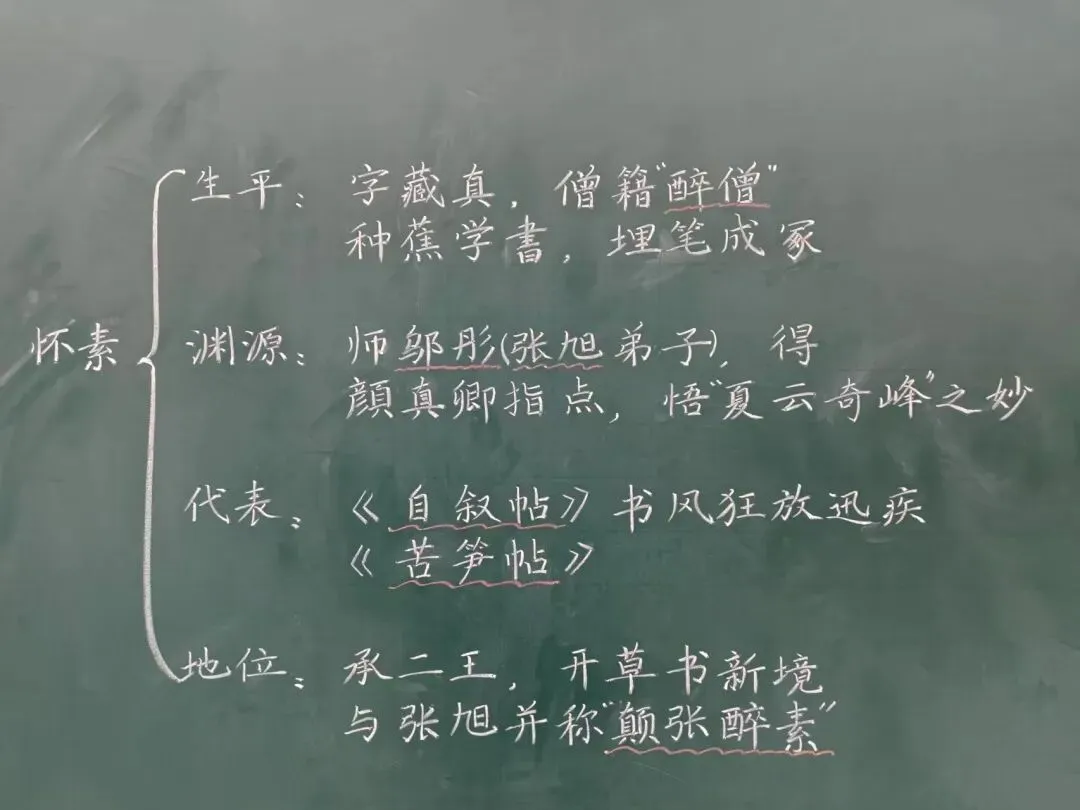 怀素
生平：字藏真，僧籍“醉僧”
种蕉学書，埋笔成冢
渊源：师邬彤(张旭弟子)，得
顔真卿指点，悟“夏云奇峰”之妙
代表：《自叙帖》书风狂放迅疾
《苦笋帖》
地位：承二王，开草书新境
与张旭并称“颠张醉素”